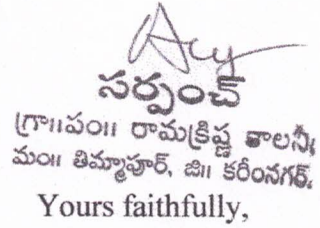 సర్పంచ్
గ్రా॥పం॥ రామక్రిష్ణ కాలనీ
మం॥ తిమ్మాపూర్, జి॥ కరీంనగర్.
Yours faithfully,